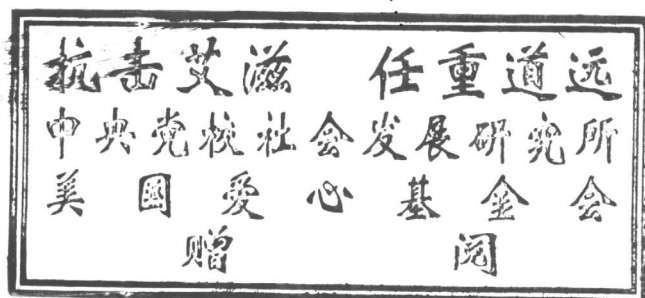 抗击艾滋 任重道远
中央党校社会发展研究所
美國愛心基金会
赠阅